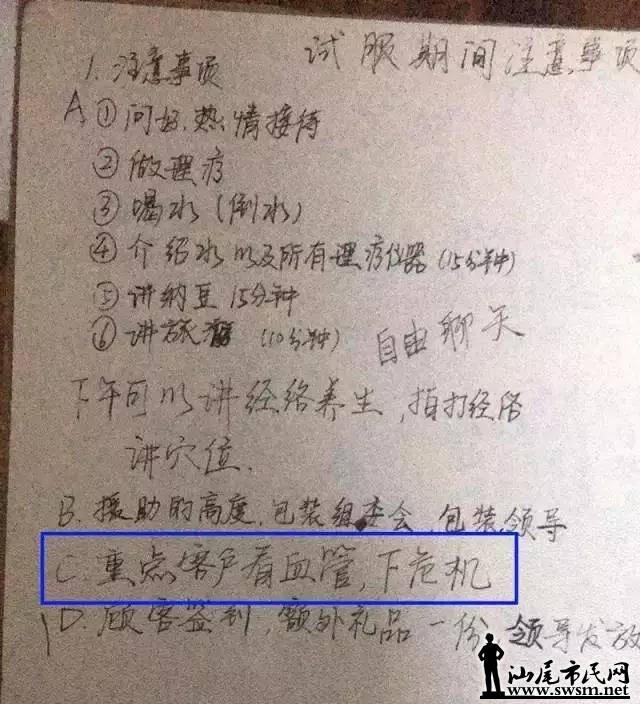 试服期间注意事项
1. 注意事项
A ① 问好, 热情接待
② 做理疗
③ 喝水 (倒水)
④ 介绍水以及所有理疗仪器 (15分钟)
⑤ 讲纳豆 15分钟
⑥ 讲 (10分钟) 自由聊天
下午可以讲经络养生, 拍打经络
讲穴位.
B. 援助的高度, 包装组委会, 包装领导
C. 重点客户看血管, 下危机
D. 顾客签到, 额外礼品一份, 领导发放
汕尾市民网
www.swsm.net